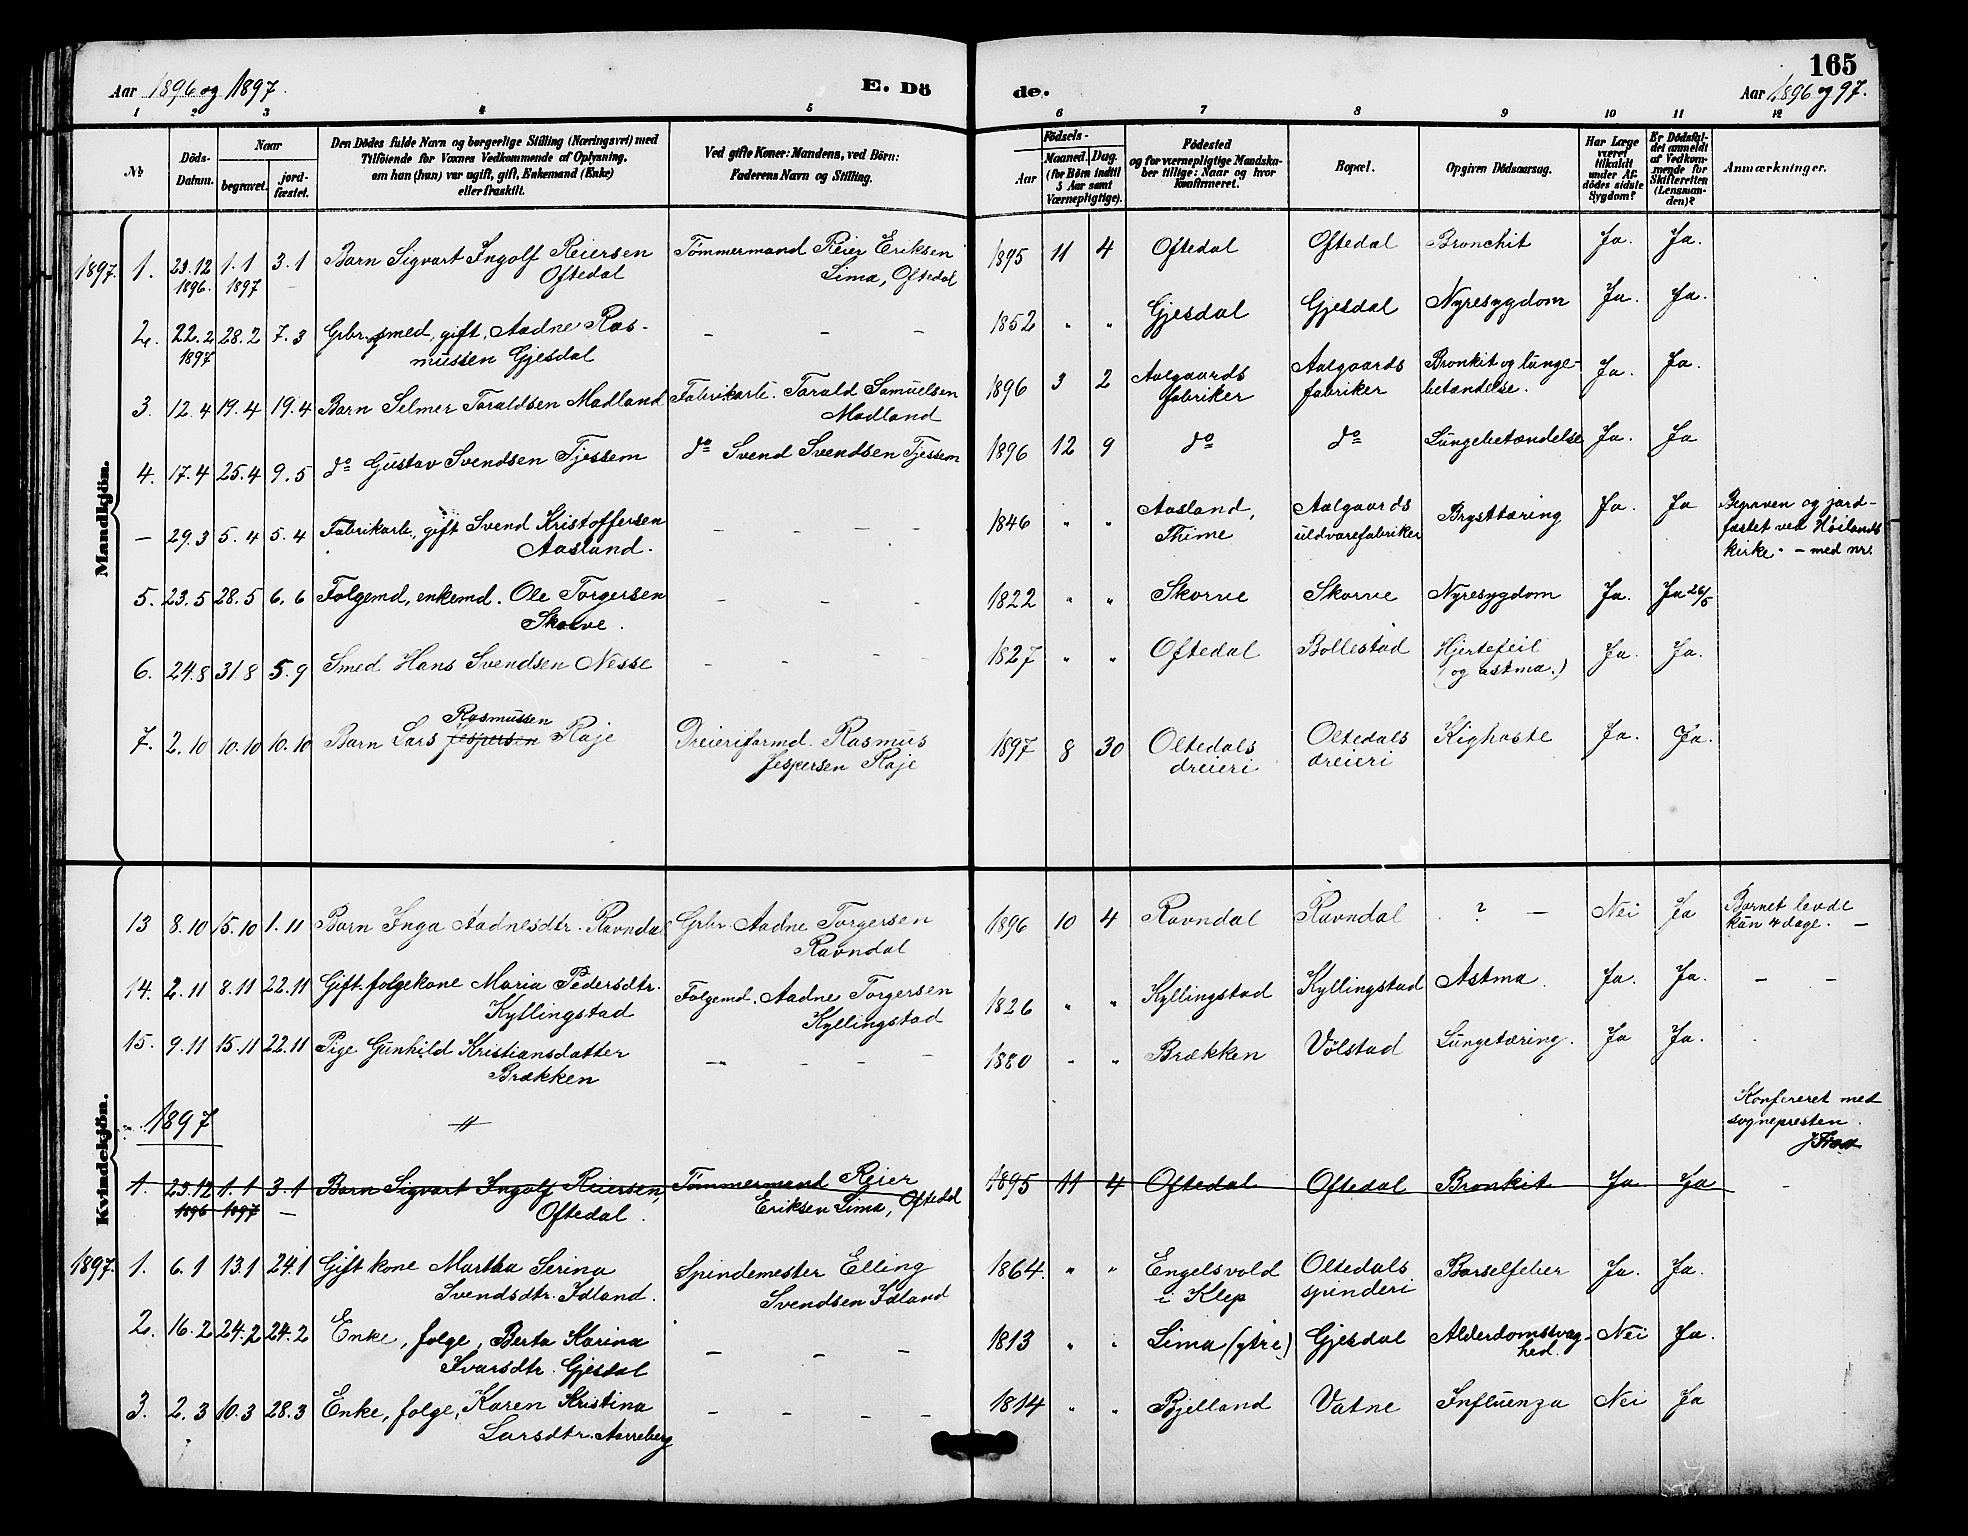 165
Aar 1896 og 1897.
E. Dö
de.
Aar 1896 og 97.
1 2 3 4 5 6 7 8 9 10 11 12
№
Döds-Datum.
Naar
begravet.
jord-fæstet.
Den Dödes fulde Navn og borgerlige Stilling (Næringsvei) med
Tilföiende for Voxnes Vedkommende af Oplysning,
om han (hun) var ugift, gift, Enkemand (Enke)
eller fraskilt.
Ved gifte Koner: Mandens, ved Börn:
Faderens Navn og Stilling.
Födsels-
Aar
Maaned. Dag.
(for Börn indtil
5 Aar samt
Værnepligtige).
Födested
og for værnepligtige Mandska-
ber tillige: Naar og hvor
konfirmeret.
Bopæl.
Opgiven Dödsaarsag.
Har Læge
været
tilkaldt
under Af-
dödes sidste
Sygdom?
Er Dödsfal-
det anmeldt
af Vedkom-
mende for
Skifteretten
(Lensman-
den)?
Anmærkninger.
Mandkjön.
1897. 1. 23.12 1.1 3.1 Barn Sigvart Ingolf Reiersen Tömmermand Reier Eriksen 1895 11 4 Oftedal Oftedal Bronchit Ja. Ja.
1896. 1897 – Oftedal Lima, Oftedal
2. 22.2 28.2 7.3 Grbr. og smed, gift, Aadne Ras- – – – 1852 " " Gjesdal Gjesdal Nyresygdom Ja. Ja.
1897 mussen Gjesdal
3. 12.4 19.4 19.4 Barn Selmer Toraldsen Madland Fabrikarb. Torald Samuelsen 1896 3 2 Aalgaards Aalgaards Bronkit og lunge- Ja. Ja.
Madland fabriker fabriker betændelse.
4. 17.4 25.4 9.5 do Gustav Svendsen Tjessem do Svend Svendsen Tjessem 1896 12 9 do do Lungebetændelse Ja. Ja
– 29.3 5.4 5.4 Fabrikarb., gift Svend Kristoffersen – – – 1846 " " Aasland, Aalgaards Brysttæring Ja. Ja Begraven og jord-
Aasland. Thime uldvarefabriker fæstet ved Höilands
kirke. – med nr.
5. 23.5 28.5 6.6 Folgemd, enkemd. Ole Torgersen – – – 1822 " " Skorve Skorve Nyresygdom Ja. Ja 26/5
Skorve.
6. 24.8 31.8 5.9 Smed Hans Svendsen Nesse – – – 1827 " " Oftedal Bollestad Hjertefeil Ja. Ja.
(og astma.)
Rasmussen
7. 2.10 10.10 10.10 Barn Lars Jespersen Raje Dreieriformd. Rasmus 1897 8 30 Oltedals Oltedals Kighoste Ja. Ja.
Jespersen Raje dreieri dreieri
Kvindekjön.
13 8.10 15.10 1.11 Barn Inga Aadnesdtr. Ravndal Grbr. Aadne Torgersen 1896 10 4 Ravndal Ravndal ? – Nei Ja Barnet levde
Ravndal kun 4 dage. –
14. 2.11 8.11 22.11 Gift folgekone Maria Pedersdtr. Folgemd. Aadne Torgersen 1826 " " Kyllingstad Kyllingstad Astma. Ja. Ja. – –
Kyllingstad Kyllingstad
15. 9.11 15.11 22.11 Pige Gunhild Kristiansdatter – – – 1880 " " Brækken Völstad Lungetæring. Ja Ja.
Brækken
1897
Konfereret med
sognepresten.
1. 23.12 1.1 3.1 Barn Sigvart Ingolf Reiersen, Tömmermand Reier 1895 11 4 Oftedal Oftedal Bronkit Ja Ja –
1896 1897 – Oftedal. Eriksen Lima, Oftedal
1897. 1. 6.1 13.1 24.1 Gift kone Martha Serina Spindemester Elling 1864 " " Engelsvold Oltedals Barselfeber Ja. Ja.
Svendsdtr. Idland. Svendsen Idland i Klep spinderi
2. 16.2 24.2 24.2 Enke, folge, Berta Karina – – – 1813 " " Lima (ytre) Gjesdal Alderdomssvag- Nei Ja.
Ivarsdtr. Gjesdal hed.
3. 2.3 10.3 28.3 Enke, folge, Karen Kristina – – – – 1814 " " Bjelland Vatne Influenza Nei Ja
Larsdtr. Aarreberg